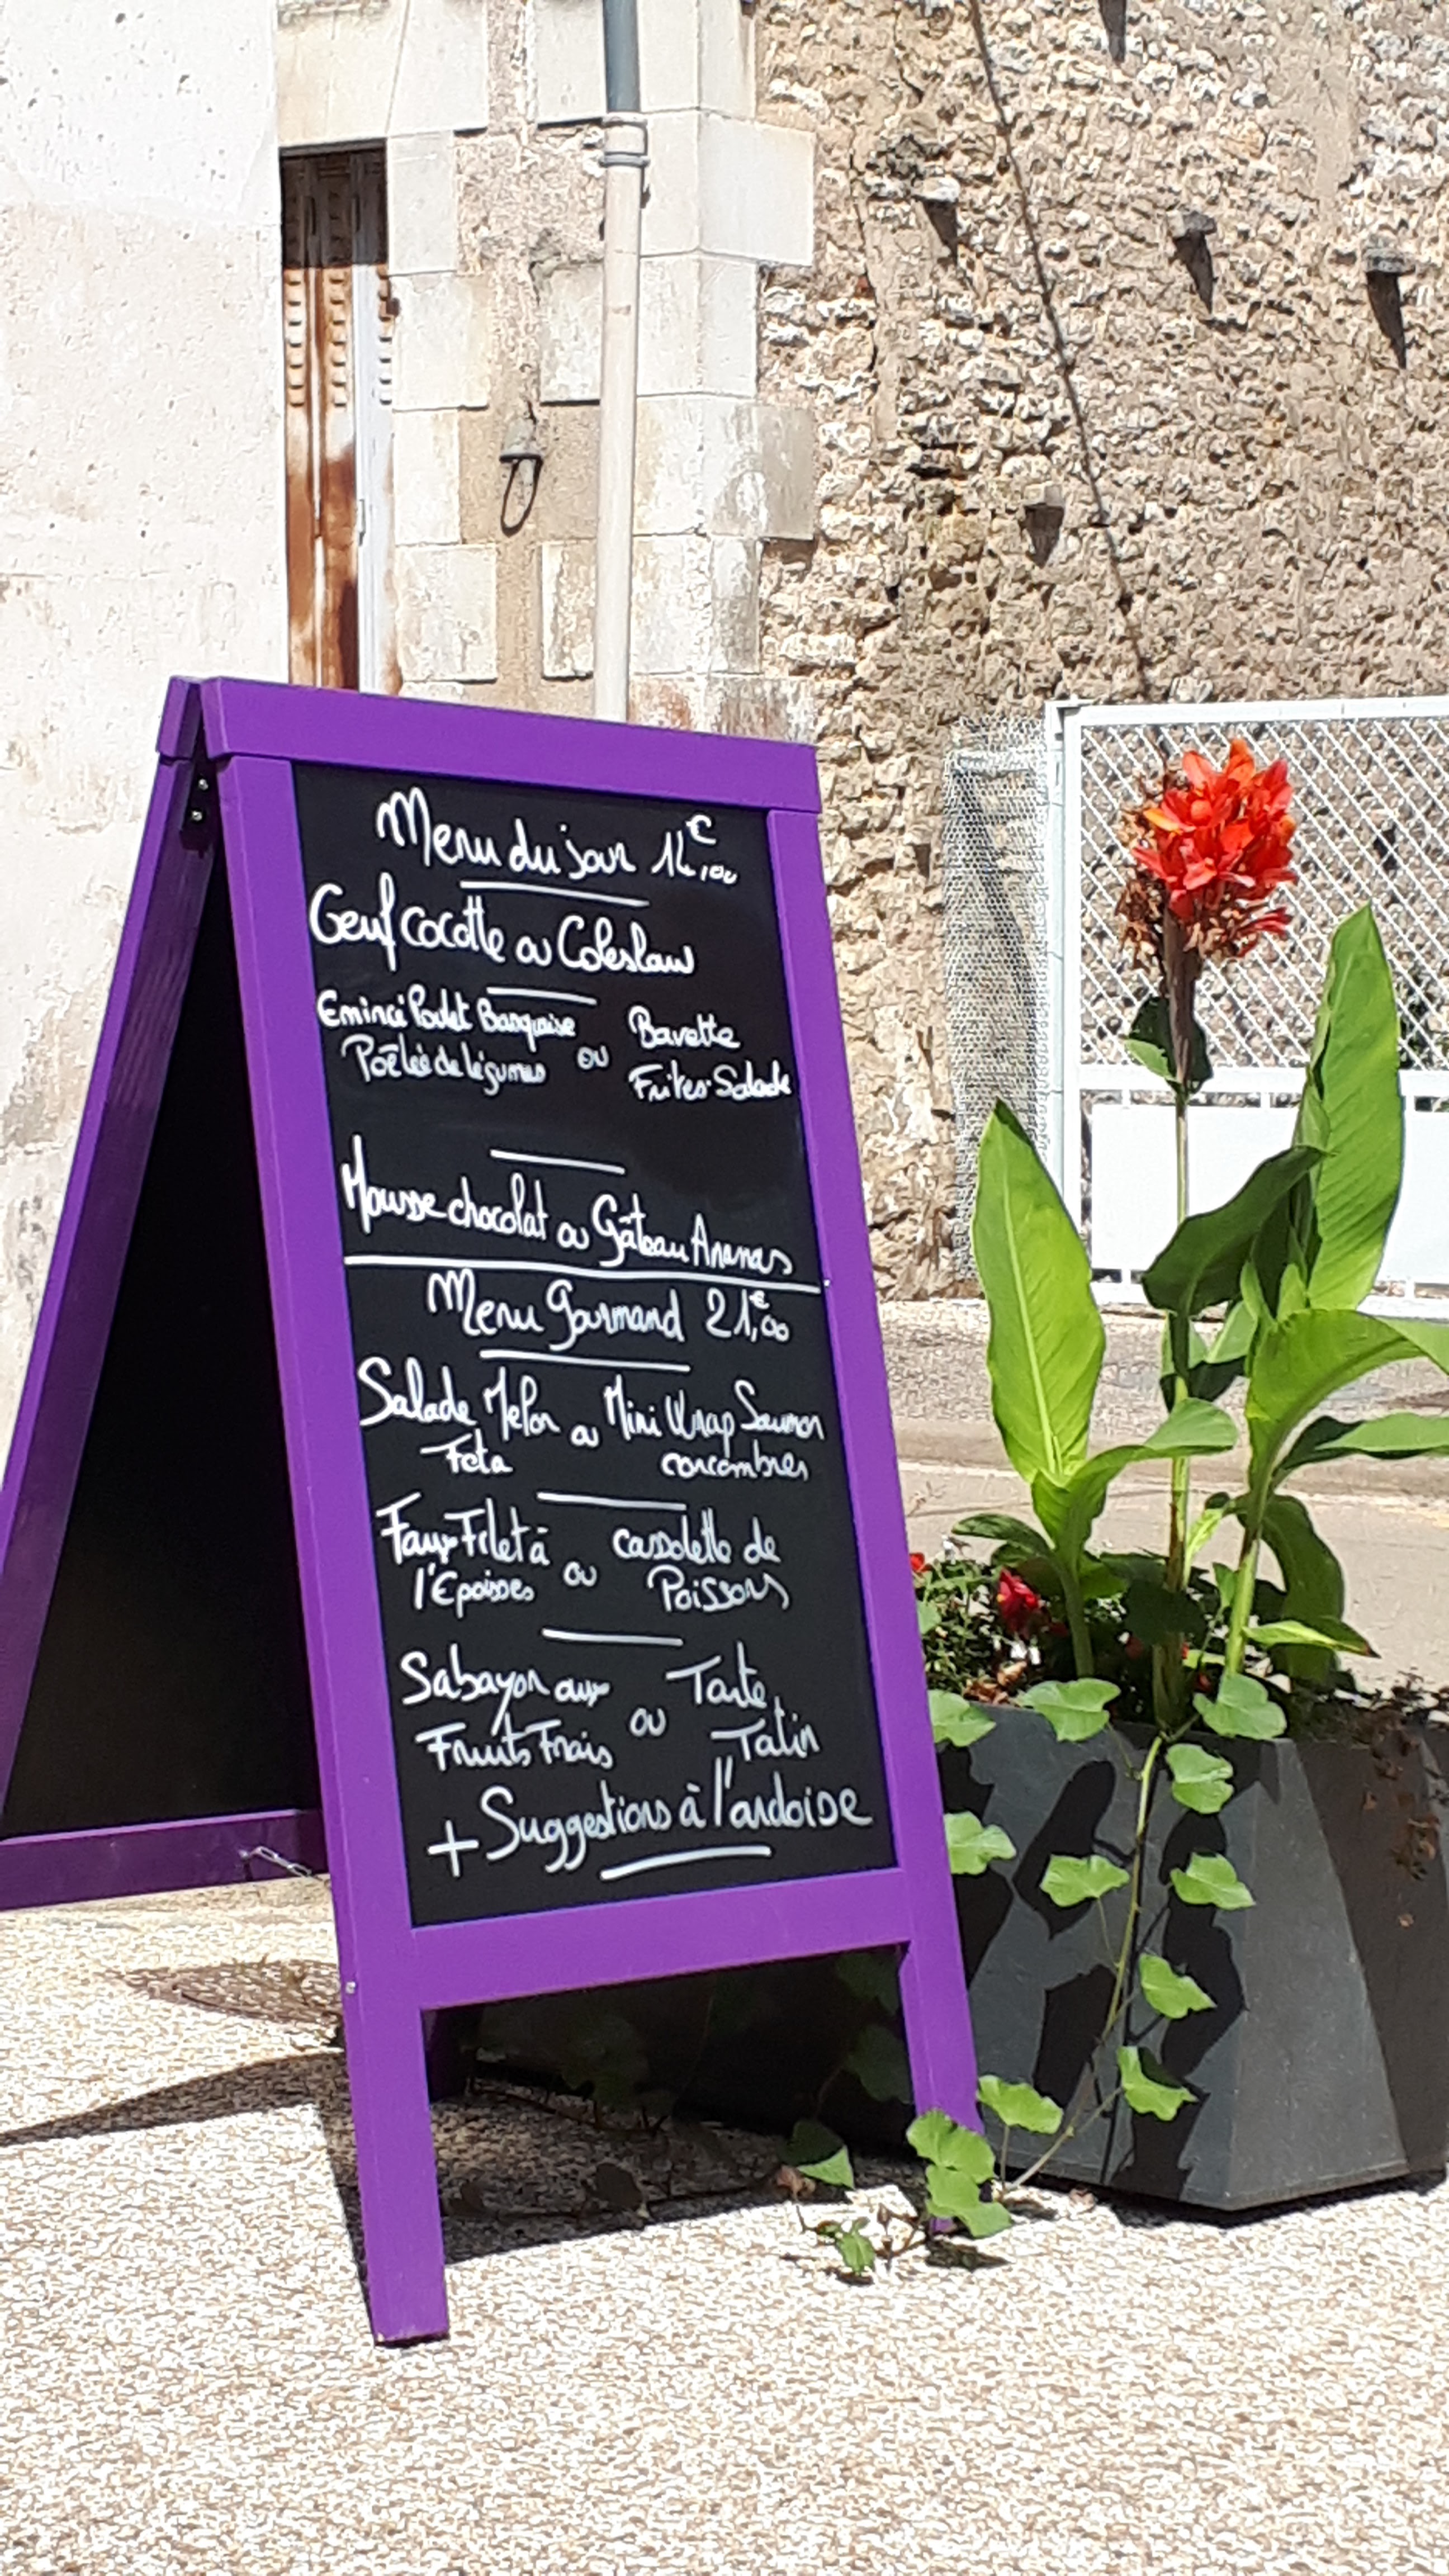 Menu du jour 14,00€
Oeuf cocotte ou Coleslaw
Emincé Poulet Basquaise ou Bavette
Poêlée de légumes Frites-Salade
Mousse chocolat ou Gâteau Ananas
Menu Gourmand 21,00€
Salade Melon ou Mini Wrap Saumon
Feta concombres
Faux Filet à ou cassolette de
l'Epoisses Poissons
Sabayon aux ou Tarte
Fruits Frais Tatin
+ Suggestions à l'ardoise